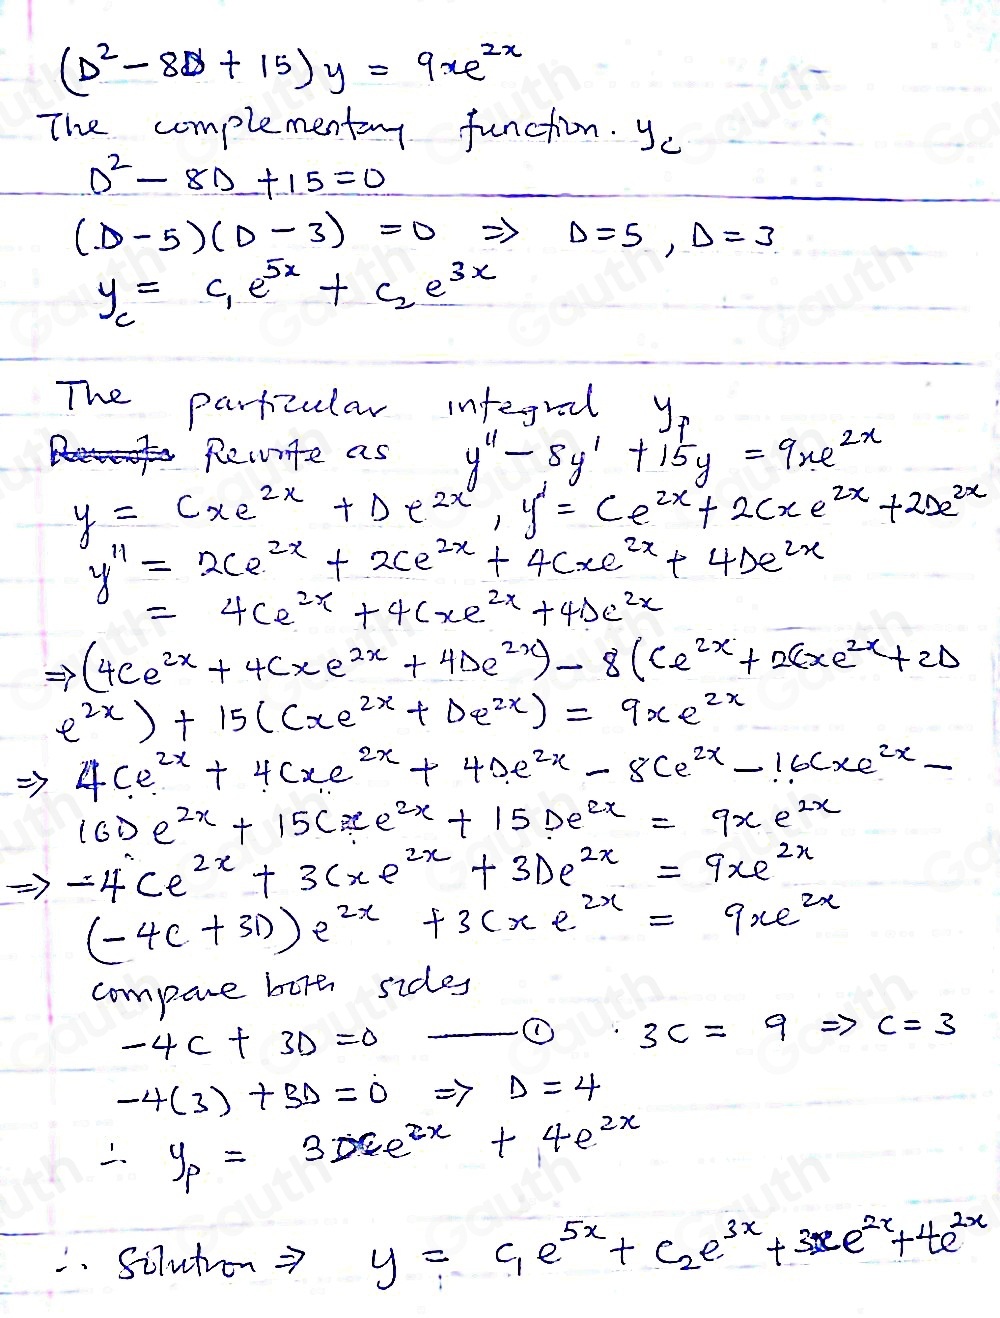 (D² - 8D + 15)y = 9xe^{2x}
The complementary function. y_c
D² - 8D + 15 = 0
(D - 5)(D - 3) = 0 ⇒ D = 5, D = 3
y_c = c₁e^{5x} + c₂e^{3x}
The particular integral y_p
Rewrite as y'' - 8y' + 15y = 9xe^{2x}
y = Cxe^{2x} + De^{2x}, y' = Ce^{2x} + 2Cxe^{2x} + 2De^{2x}
y'' = 2Ce^{2x} + 2Ce^{2x} + 4Cxe^{2x} + 4De^{2x}
= 4Ce^{2x} + 4Cxe^{2x} + 4De^{2x}
⇒ (4Ce^{2x} + 4Cxe^{2x} + 4De^{2x}) - 8(Ce^{2x} + 2Cxe^{2x} + 2D
e^{2x}) + 15(Cxe^{2x} + De^{2x}) = 9xe^{2x}
⇒ 4Ce^{2x} + 4Cxe^{2x} + 4De^{2x} - 8Ce^{2x} - 16Cxe^{2x} -
16De^{2x} + 15Cxe^{2x} + 15De^{2x} = 9xe^{2x}
⇒ -4Ce^{2x} + 3Cxe^{2x} + 3De^{2x} = 9xe^{2x}
(-4C + 3D)e^{2x} + 3Cxe^{2x} = 9xe^{2x}
compare both sides
-4C + 3D = 0 —— ① 3C = 9 ⇒ C = 3
-4(3) + 3D = 0 ⇒ D = 4
∴ y_p = 3xe^{2x} + 4e^{2x}
∴ Solution ⇒ y = c₁e^{5x} + c₂e^{3x} + 3xe^{2x} + 4e^{2x}